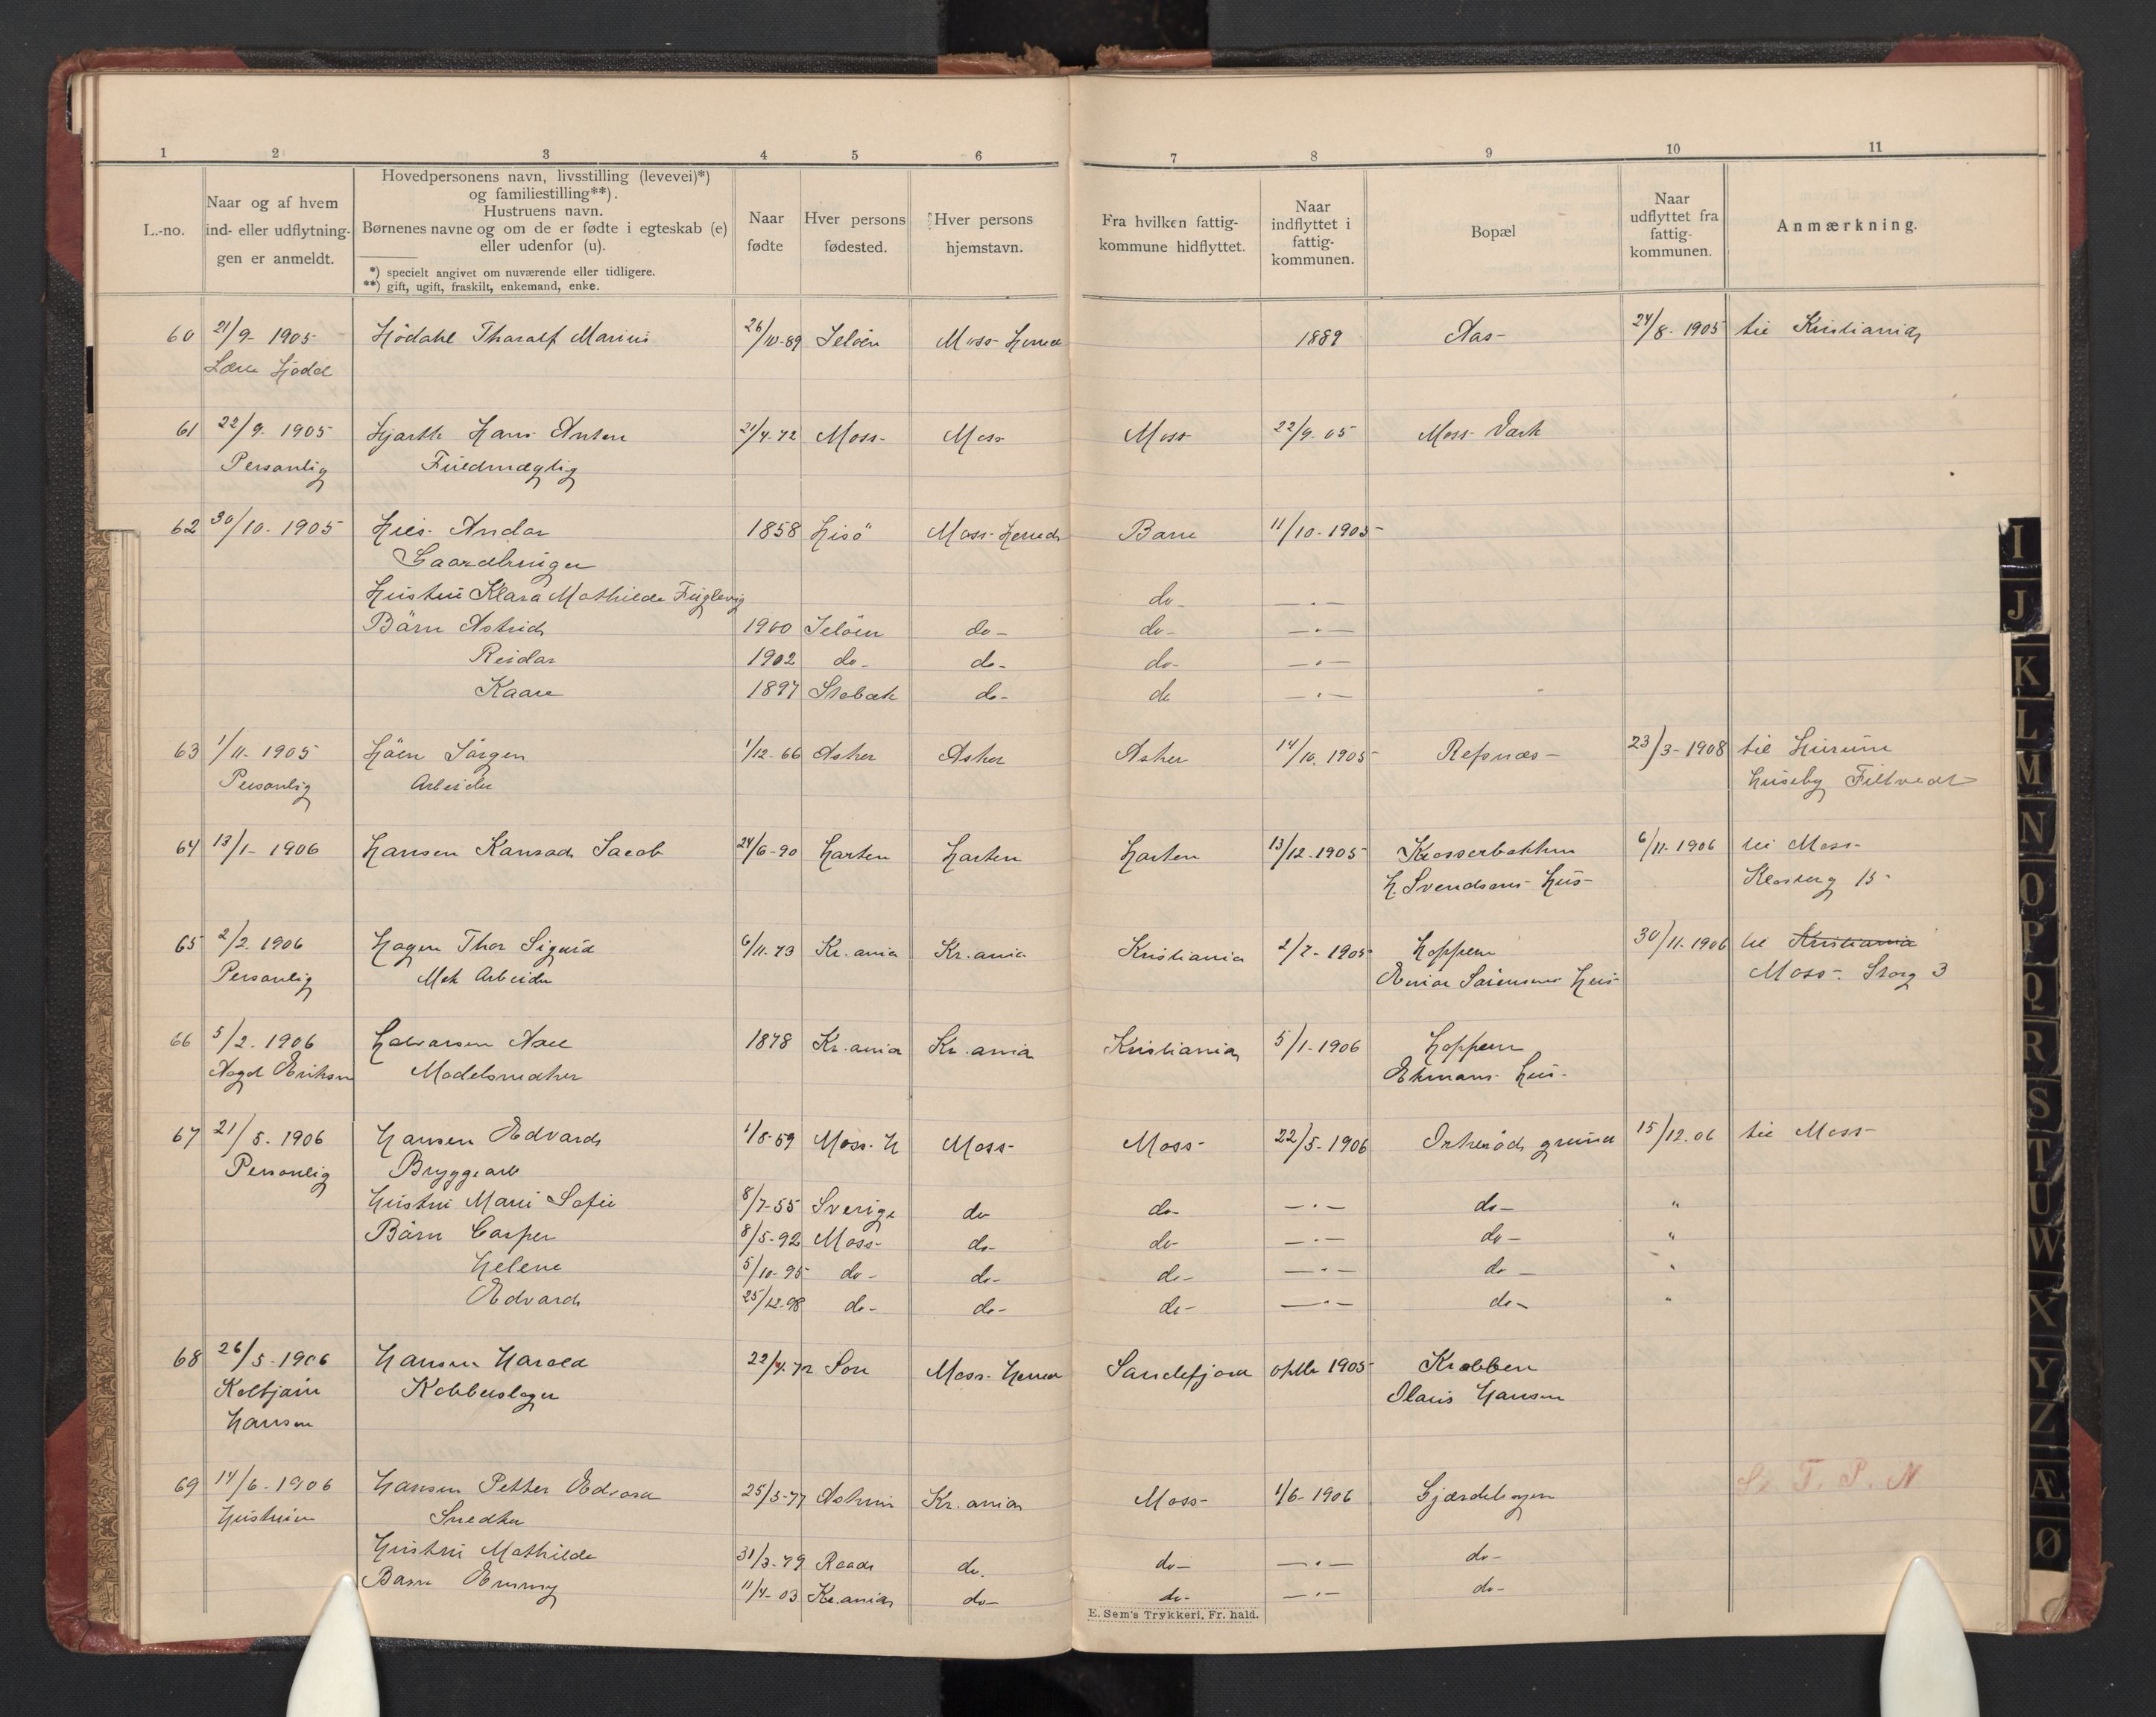 1 2 3 4 5 6 7 8 9 10 11
L.-no.
Naar og af hvem
ind- eller udflytnin-
gen er anmeldt.
Hovedpersonens navn, livsstilling (levevei)*)
og familiestilling**).
Hustruens navn.
Børnenes navne og om de er fødte i egteskab (e)
eller udenfor (u).
*) specielt angivet om nuværende eller tidligere.
**) gift, ugift, fraskilt, enkemand, enke.
Naar
fødte
Hver persons
fødested.
Hver persons
hjemstavn.
Fra hvilken fattig-
kommune hidflyttet.
Naar
indflyttet i
fattig-
kommunen.
Bopæl
Naar
udflyttet fra
fattig-
kommunen.
Anmærkning.
60 21/9- 1905- Hödahl Tharalf Marius 26/10-89 Jelöen Moss Herred 1889 Aas- 24/8-1905 til Kristiania
61 22/9. 1905 Hjarth Hans Anton 21/4-72 Moss- Moss Moss 22/9-05 Moss Værk
Personlig Fuldmægtig
62 30/10-1905 1858 Hisö Moss-Herred 11/10-1905-
Gaardbruger
Hustru Klara Mathilde Fuglevig do- — . —
Börn Astrid 1900 Jelöen do- do- — . —
Reidar 1902 do- do- do- — . —
Kaare 1897 Stabæk do- do — . —
63 1/11-1905 Höen Jörgen 1/12-66 Asker Asker Asker 14/10.1905- Refsnæs- 23/3-1908 til Hurum
Personlig Arbeider Huseby Filtvedt
64 13/1-1906 Hansen Jacob 24/6-90 13/12-1905- 6/11-1906 til Moss-
H. Svendsens Hus- 15-
65 2/2.1906 Hagen Thor Sigurd 6/11-73 Kr.ania Kr.ania Kristiania 2/7-1905- Hoppern 30/11-1906 til Kristiania
Personlig Mek Arbeider Sörensens Hus- Moss-. Storg 3
66 5/2.1906 1878 Kr.ania Kr.ania Kristiania 5/1-1906 Hoppern
Modelsnedker Ekmans Hus-
67 21/5-1906 Hansen Edvard 1/8-59 Moss-H Moss- Moss- 22/5-1906 Orkeröd grund 15/12.06 til Moss
Personlig Bryggearb
Hustru Mari Sofie 8/7-55 Sverige do do- — . — do- "
Börn Casper 8/5-92 Moss- do- do- — . — do- "
Helene 5/10-95 do- do- do- — . — do- "
Edvard 25/12-98 do- do- do- — . — do- "
68 26/5-1906 Hansen Harald 22/4-72 Son Moss-Herred Sandefjord 1905- Krabben
Kolbjörn Kobberslager Olaus Hansen
Hansen
69 14/6-1906 Hansen Petter Edvard 25/5-77 Askim Kr.ania Moss- 1/6-1906 Gjærdehagen T. P. N
Hustruen Snedker
Hustru Mathilde 31/3-79 Raade do. do- — . — do-
Barn Emmy 11/4-03 Kr.ania do- do- — . — do-
E. Sem's Trykkeri, Fr. hald.
I
J
K
L
M
N
O
P
Q
R
S
T
U
W
X
Y
Z
Æ
Ø